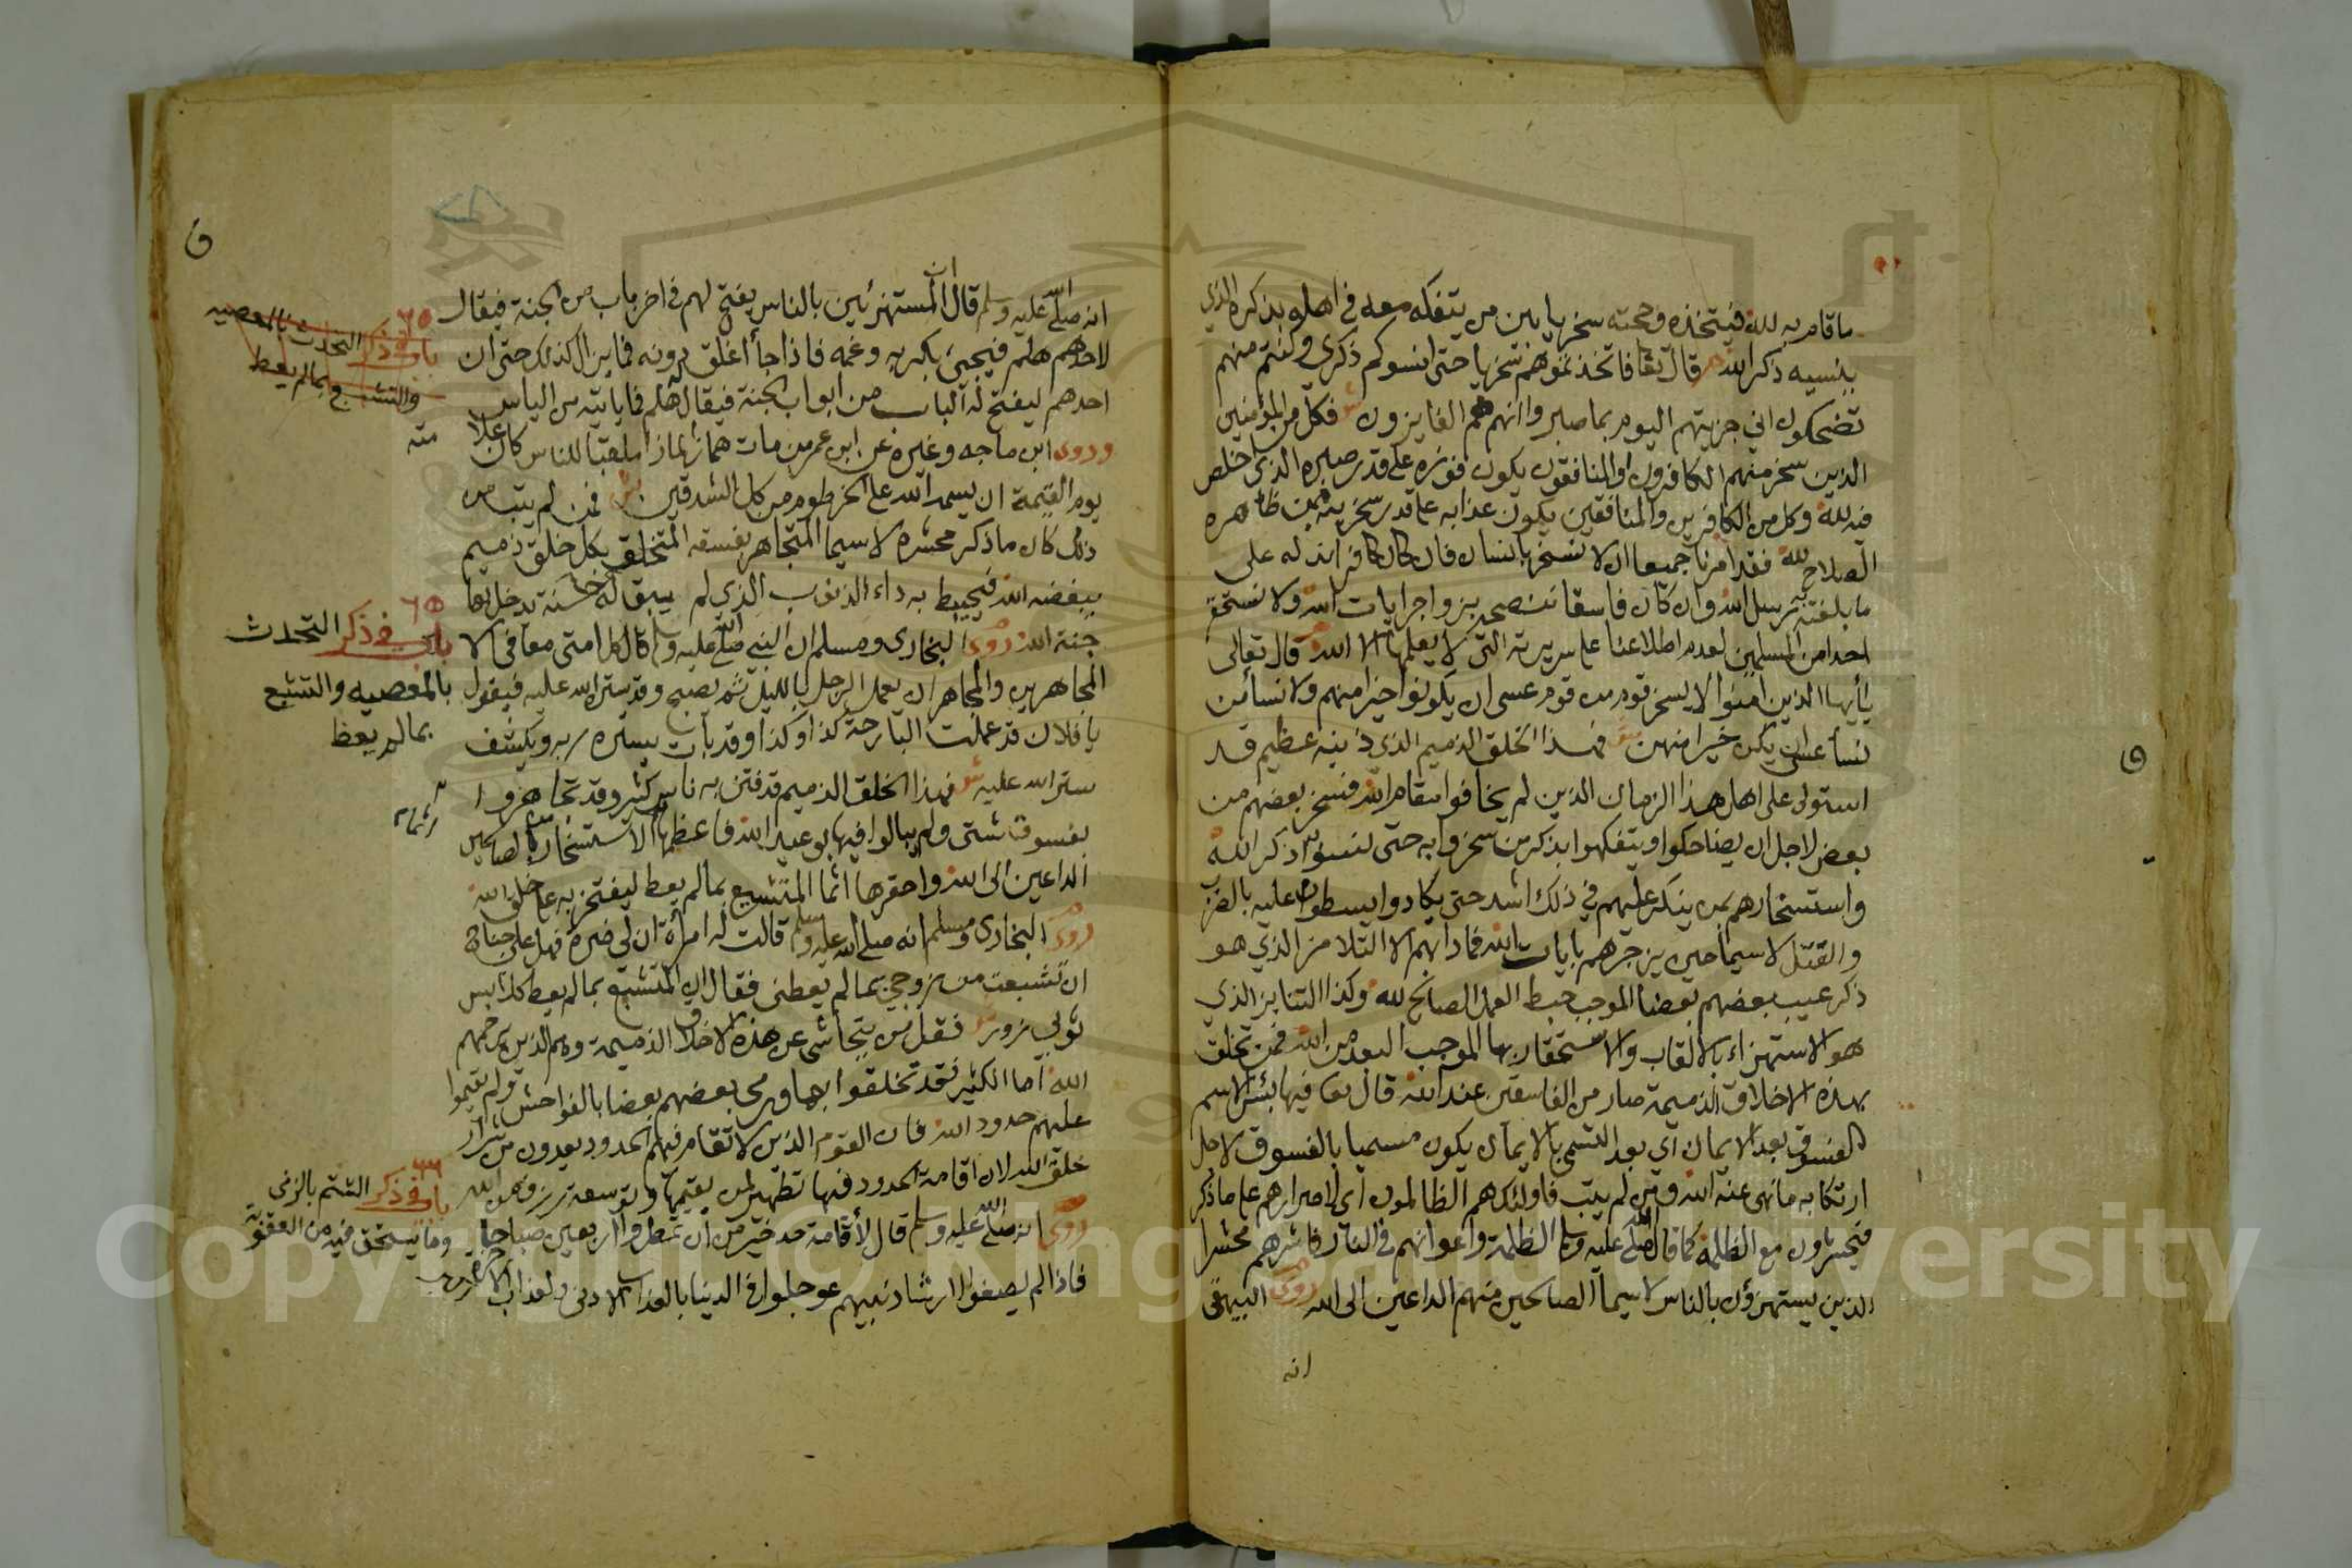 ما قام به لله فيتخذه وصحبته سخريا بين من يتفكه معه في اهله بذكره الذي
ينسيه ذكر الله قال تعا فاتخذتموهم سخريا حتى انسوكم ذكري وكنتم منهم
تضحكون اني جزيتهم اليوم بما صبروا انهم هم الفايزون فكل من المؤمنين
الذين سخر منهم الكافرون او المنافقون يكون فوزه على قدر صبره الذي اخلص
فيه لله وكل من الكافرين والمنافقين يكون عذابه على قدر سخريته بمن ظاهره
الصلاح لله فقد امرنا جميعا ان لا نسخر بانسان فان كان كافرا
ما بلغته رسل الله وان كان فاسقا بزواجر ايات الله ولا نستحقر
احدا من المسلمين لعدم اطلاعنا على سريرته التي لا يعلمها الا الله قال تعالى
يأيها الذين امنوا لا يسخر قوم من قوم عسى ان يكونوا خيرا منهم ولا نسأ من
نسأ عسى ان يكن خيرا منهن فهذا الخلق الذميم الذي ذنبه عظيم قد
استولى على اهل هذا الزمان الذين لم يخافوا مقام الله فسخر بعضهم من
بعض لاجل ان يضاحكوا ويتفكهوا بذكر من سخروا به حتى نسوا ذكر الله
واستسخارهم بمن ينكر عليهم في ذلك اشد حتى يكادوا يسطون عليه بالضرب
والقتل لا سيما حين يزجرهم بايات الله فما دابهم الا التلامز الذي هو
ذكر عيب بعضهم بعضا الموجب حبط العمل الصالح لله وكذا التنابز الذي
هو الاستهزاء بالالقاب والاستحقار بها الموجب البعد من الله فمن تخلق
بهذه الاخلاق الذميمة صار من الفاسقين عند الله قال تعا فيها بئس الاسم
الفسوق بعد الايمان اي بعد التسمي بالايمان يكون مسميا بالفسوق لاجل
ارتكابه ما نهى عنه الله ومن لم يتب فاولئك هم الظالمون اي لاصرارهم على ما ذكر
فيحشرون مع الظلمة كما قال صلى الله عليه وسلم الظلمة واعوانهم في النار فاشرهم محشرا
الذين يستهزؤن بالناس لا سيما الصالحين منهم الداعين الى الله روى البيهقي
انه
انه صلى الله عليه وسلم قال ان المستهزئين بالناس يفتح لهم في اخر باب من الجنة فيقال
لاحدهم هلم فيجئ بكربه وغمه فاذا جأ اغلق دونه فما يزال كذلك حتى ان
احدهم ليفتح له الباب من ابواب الجنة فيقال هلم فما ياتيه من الياس
وروى ابن ماجه وغيره عن ابن عمر من مات همازا لمازا ملقبا للناس كان علا
يوم القيمة ان يسمه الله على الخرطوم من كل الشدقين فمن لم يتب من
ذلك كان ما ذكر محشره لا سيما المتجاهر بفسقه المتخلق بكل خلق ذميم
يبغضه الله فيحيط به داء الذنوب الذي لم يبق له حسنة يدخل بها
جنة الله روى البخاري ومسلم ان النبي صلى الله عليه وسلم قال كل امتي معافى الا
المجاهرين والمجاهر ان يعمل الرجل بالليل ثم يصبح وقد ستر الله عليه فيقول
يا فلان قد عملت البارحة كذا وكذا وقد بات يستره ربه ويكشف
ستر الله عليه فهذا الخلق الذميم قد فتن به ناس كثير وقد تجاهروا
بفسوقات شتى ولم يبالوا فيها بوعيد الله فاعظمها الاستسخار بالصالحين
الداعين الى الله واحقرها اثما المتشبع بما لم يعط ليفتخر به على خلق الله
روى البخاري ومسلم انه صلى الله عليه وسلم قالت له امرأة ان لي ضرة فهل علي جناح
ان تشبعت من زوجي بما لم يعطني فقال ان المتشبع بما لم يعط كلابس
ثوبي زور فقل من يتحاشى عن هذه الاخلاق الذميمة وهم الذين يرحمهم
الله اما الكثير فقد تخلقوا بها ورمى بعضهم بعضا بالفواحش ولم يقيموا
عليهم حدود الله فان القوم الذين لا تقام فيهم الحدود يعدون من شرار
خلق الله لان اقامة الحدود فيها تطهير لمن يقيمها وتوسعة رزق من الله
روى انه صلى الله عليه وسلم قال لأقامة حد خير من ان تمطروا اربعين صباحا
فاذا لم يصغوا لارشاد نبيهم عوجلوا في الدنيا بالعذاب الادنى ولعذاب الاخرة
٦٥
باب في ذكر التحدث بالمعصيه
والتشبع بما لم يعط
منه
٦٥
باب في ذكر التحدث
بالمعصيه والتشبع
بما لم يعظ
٦٦
باب في ذكر الشتم بالزنى
وما يستحق فيه من العقوبة
Copyright © King Saud University